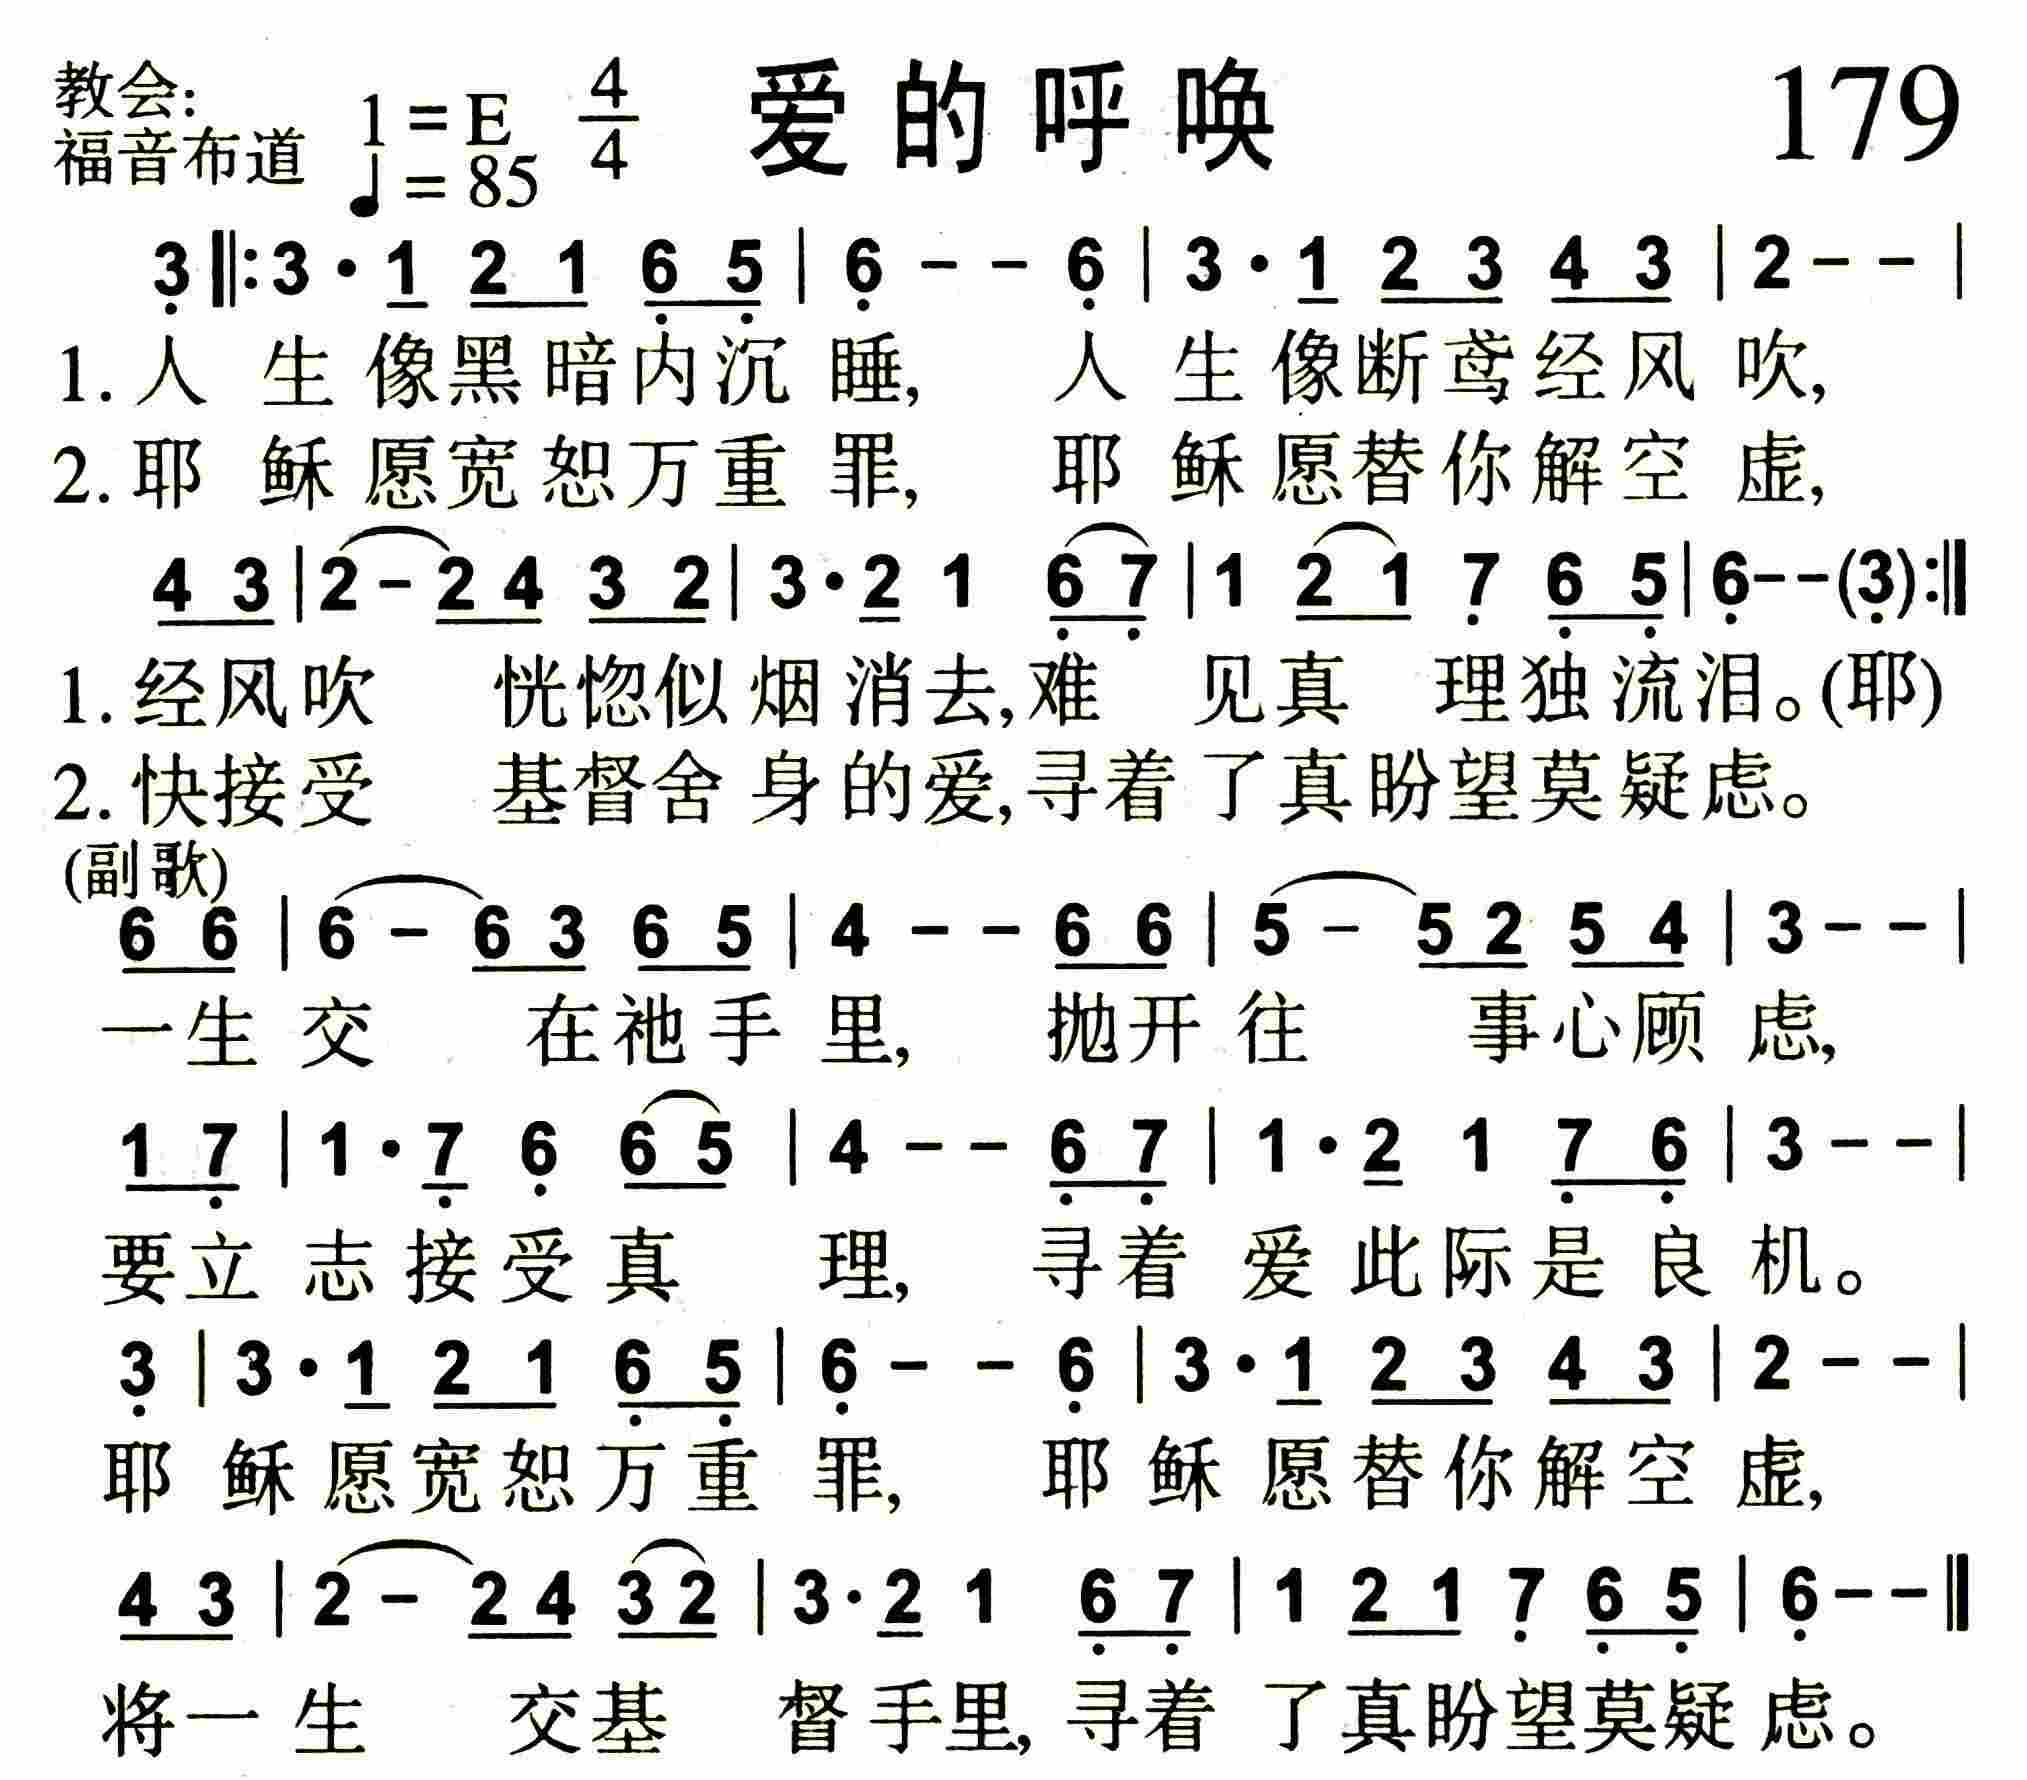 教会: 1 = E 4/4 爱的呼唤 179
福音布道 ♩ = 85
3̣ ‖: 3 · 1 2 1 6̣ 5̣ | 6̣ - - 6̣ | 3 · 1 2 3 4 3 | 2 - - |
1. 人 生 像黑暗内沉 睡, 人 生 像断鸢经风 吹,
2. 耶 稣 愿宽恕万重 罪, 耶 稣 愿替你解空 虚,
4 3 | 2 - 2 4 3 2 | 3 · 2 1 6̣ 7̣ | 1 2 1 7̣ 6̣ 5̣ | 6̣ - - (3̣) :‖
1. 经风吹 恍惚似烟消去,难 见真 理独流泪。(耶)
2. 快接受 基督舍身的爱,寻着了真盼望莫疑虑。
(副歌)
6 6 | 6 - 6 3 6 5 | 4 - - 6 6 | 5 - 5 2 5 4 | 3 - - |
一生 交 在祂手 里, 抛开 往 事心顾 虑,
1 7̣ | 1 · 7̣ 6̣ 6 5 | 4 - - 6̣ 7̣ | 1 · 2 1 7̣ 6̣ | 3 - - |
要立 志接受真 理, 寻着 爱此际是良机。
3̣ | 3 · 1 2 1 6̣ 5̣ | 6̣ - - 6̣ | 3 · 1 2 3 4 3 | 2 - - |
耶 稣 愿宽恕万重 罪, 耶 稣 愿替你解空 虚,
4 3 | 2 - 2 4 3 2 | 3 · 2 1 6̣ 7̣ | 1 2 1 7̣ 6̣ 5̣ | 6̣ - - ‖
将一 生 交基 督手里,寻着 了真盼望莫疑虑。